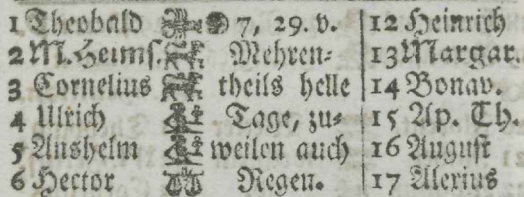 1 Theobald 7, 29. v. 12 Heinrich
2 M. Heims. Mehren- 13 Margar.
3 Cornelius theils helle 14 Bonav.
4 Ulrich Tage, zu- 15 Ap. Th.
5 Anshelm weilen auch 16 August
6 Hector Regen. 17 Alexius